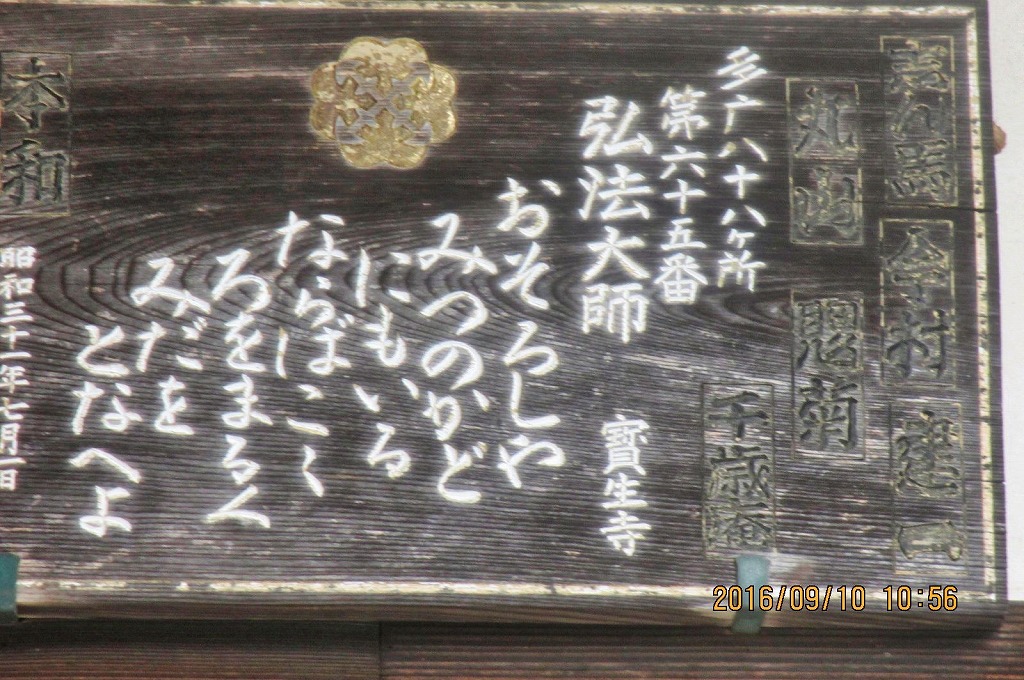 多广八十八ヶ所
第六十五番
弘法大師 寶生寺
おそろしや
みつのかど
にもいる
ならばこゝ
ろをまるく
みだを
となへよ
昭和三十一年七月一日
今村
丸山
照菊
千歳
本和
2016/09/10 10:56